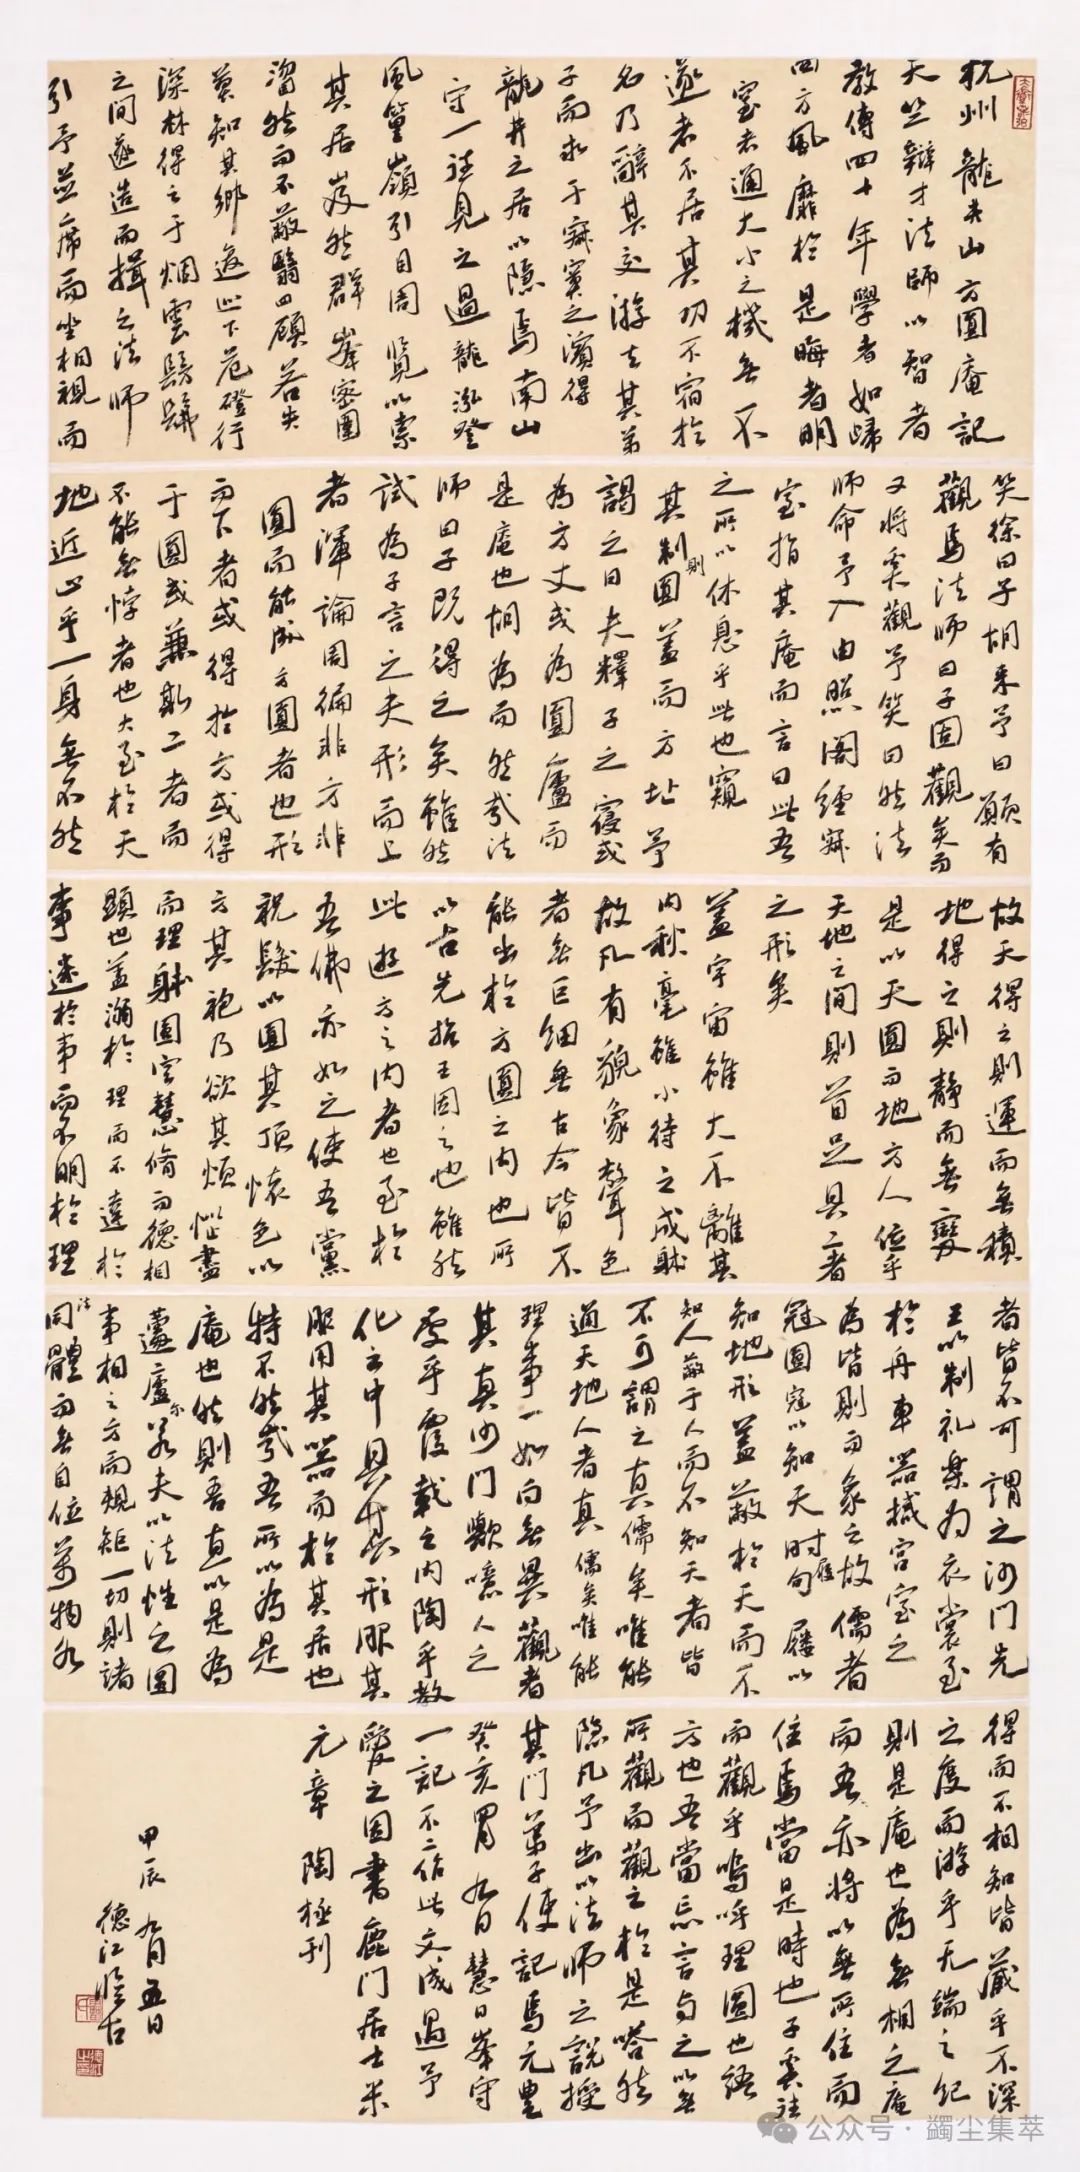 杭州龍井山方圓庵記
天竺辯才法師以智者
教傳四十年學者如歸
四方風靡於是晦者明
窒者通大小之機無不
遂者不居其功不宿於
名乃辭其交游去其弟
子而求于寂寞之濱得
龍井之居以隱焉南山
守一往見之過龍泓登
風篁嶺引目周覽以索
其居岌然群峯密圍
溜然而不蔽翳四顧若失
莫知其鄉逡巡下危磴行
深林得之于烟雲髣髴
之間遂造而揖之法師
引予並席而坐相視而
笑徐曰子胡来予曰願有
觀焉法師曰子固觀矣而
又將奚觀予笑曰然法
師命予入由照閣經寂
室指其庵而言曰此吾
之所以休息乎此也窺
其制則圓蓋而方址予
謁之曰夫釋子之寢或
為方丈或為圓廬而
是庵也胡為而然哉法
師曰子既得之矣雖然
試為子言之夫形而上
者渾論周徧非方非
圓而能成方圓者也形
而下者或得於方或得
于圓或兼斯二者而
不能無悖者也大至於天
地近止乎一身無不然
故天得之則運而無積
地得之則靜而無變
是以天圓而地方人位乎
天地之間則首足具二者
之形矣
蓋宇宙雖大不離其
内秋毫雖小待之成躰
故凡有貌象聲色
者無巨細無古今皆不
能出於方圓之内也所
以古先哲王因之也雖然
此遊方之内者也至於
吾佛亦如之使吾黨
祝髮以圓其頂懷色以
方其袍乃欲其煩惱盡
而理躰圓定慧脩而德相
顯也蓋溺於理而不達於
事迷於事而不明於理
者皆不可謂之沙門先
王以制礼楽為衣裳至
於舟車器械宮室之
為皆則而象之故儒者
冠圓冠以知天時履句屨以
知地形蓋蔽於天而不
知人蔽于人而不知天者皆
不可謂之真儒矣唯能
通天地人者真儒矣唯能
理事一如向無異觀者
其真沙門歟噫人之
處乎覆載之内陶乎教
化之中具其形服其
服用其器而於其居也
特不然哉吾所以為是
庵也然則吾直以是為
蘧廬尔若夫以法性之圓
事相之方而規矩一切則諸
法同體而無自位萬物各
得而不相知皆藏乎不深
之度而游乎无端之紀
則是庵也為無相之庵
而吾亦將以無所住而
住焉當是時也子奚往
而觀乎嗚呼理圓也語
方也吾當忘言與之以無
所觀而觀之於是嗒然
隐凡予出以法師之說授
其門弟子使記焉元豊
癸亥四月九日慧日峯守
一記不二作此文成過予
愛之因書鹿門居士米
元章 陶極刊
甲辰九月五日
德江臨古
公众号·蠲尘集萃